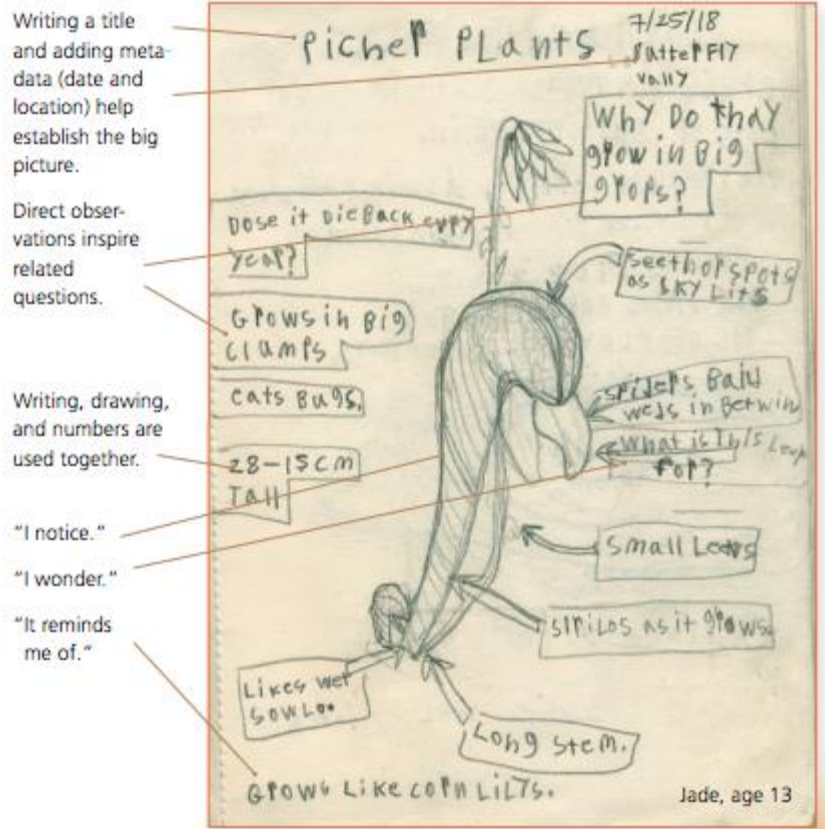 Writing a title
and adding meta-
data (date and
location) help
establish the big
picture.
Direct obser-
vations inspire
related
questions.
Writing, drawing,
and numbers are
used together.
"I notice."
"I wonder."
"It reminds
me of."
Picher Plants
7/25/18
ButterFly
vally
Why Do thay
grow in Big
grops?
Dose it Die Back evry
year?
seethor spots
as sky Lits
Grows in Big
clumps
eats Bugs.
spiders Bald
webs in Betwin
What is This Leap
For?
28-15 cm
Tall
Small Leavs
spilos as it grows.
Likes wet
Long stem.
Grows Like corn LiLys.
Jade, age 13